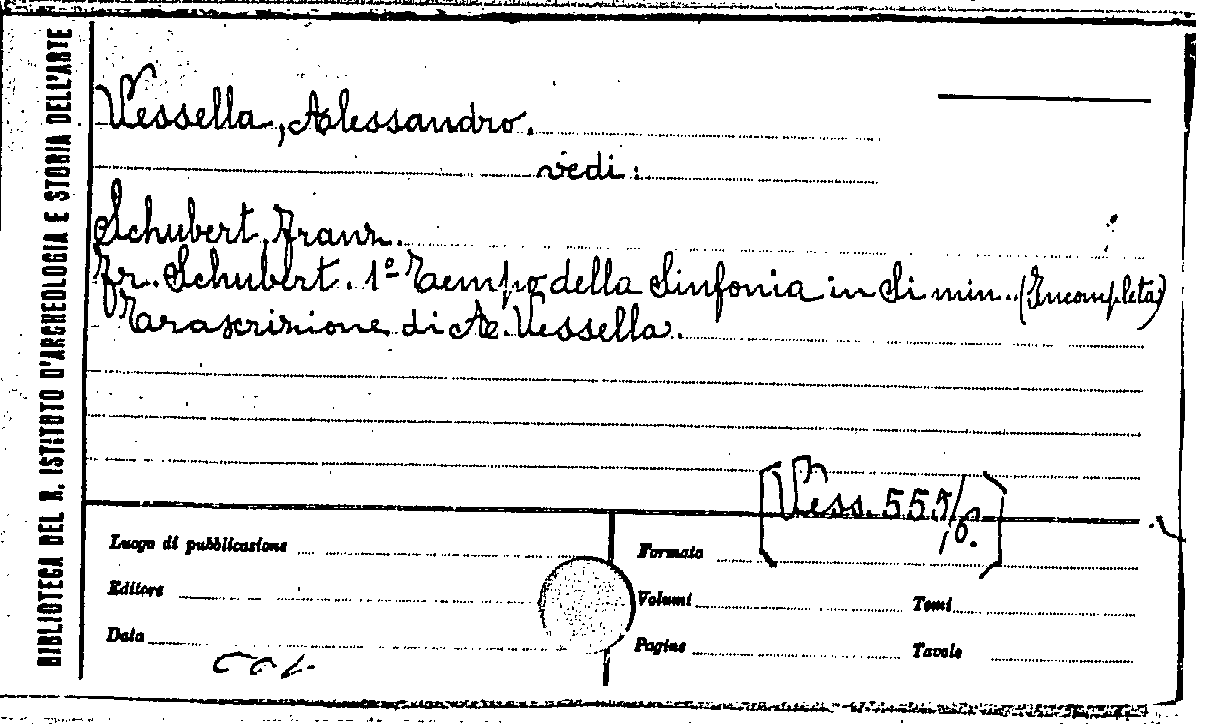 BIBLIOTECA DEL R. ISTITUTO D'ARCHEOLOGIA E STORIA DELL'ARTE
Vessella, Alessandro.
vedi:
Schubert, Franz.
Fr. Schubert. 1º Tempo della Sinfonia in Si min. (Incompleta)
Trascrizione di A. Vessella.
[Vess. 555/
Luogo di pubblicazione
Formato
Editore
Volumi
Tomi
Data
Pagine
Tavole